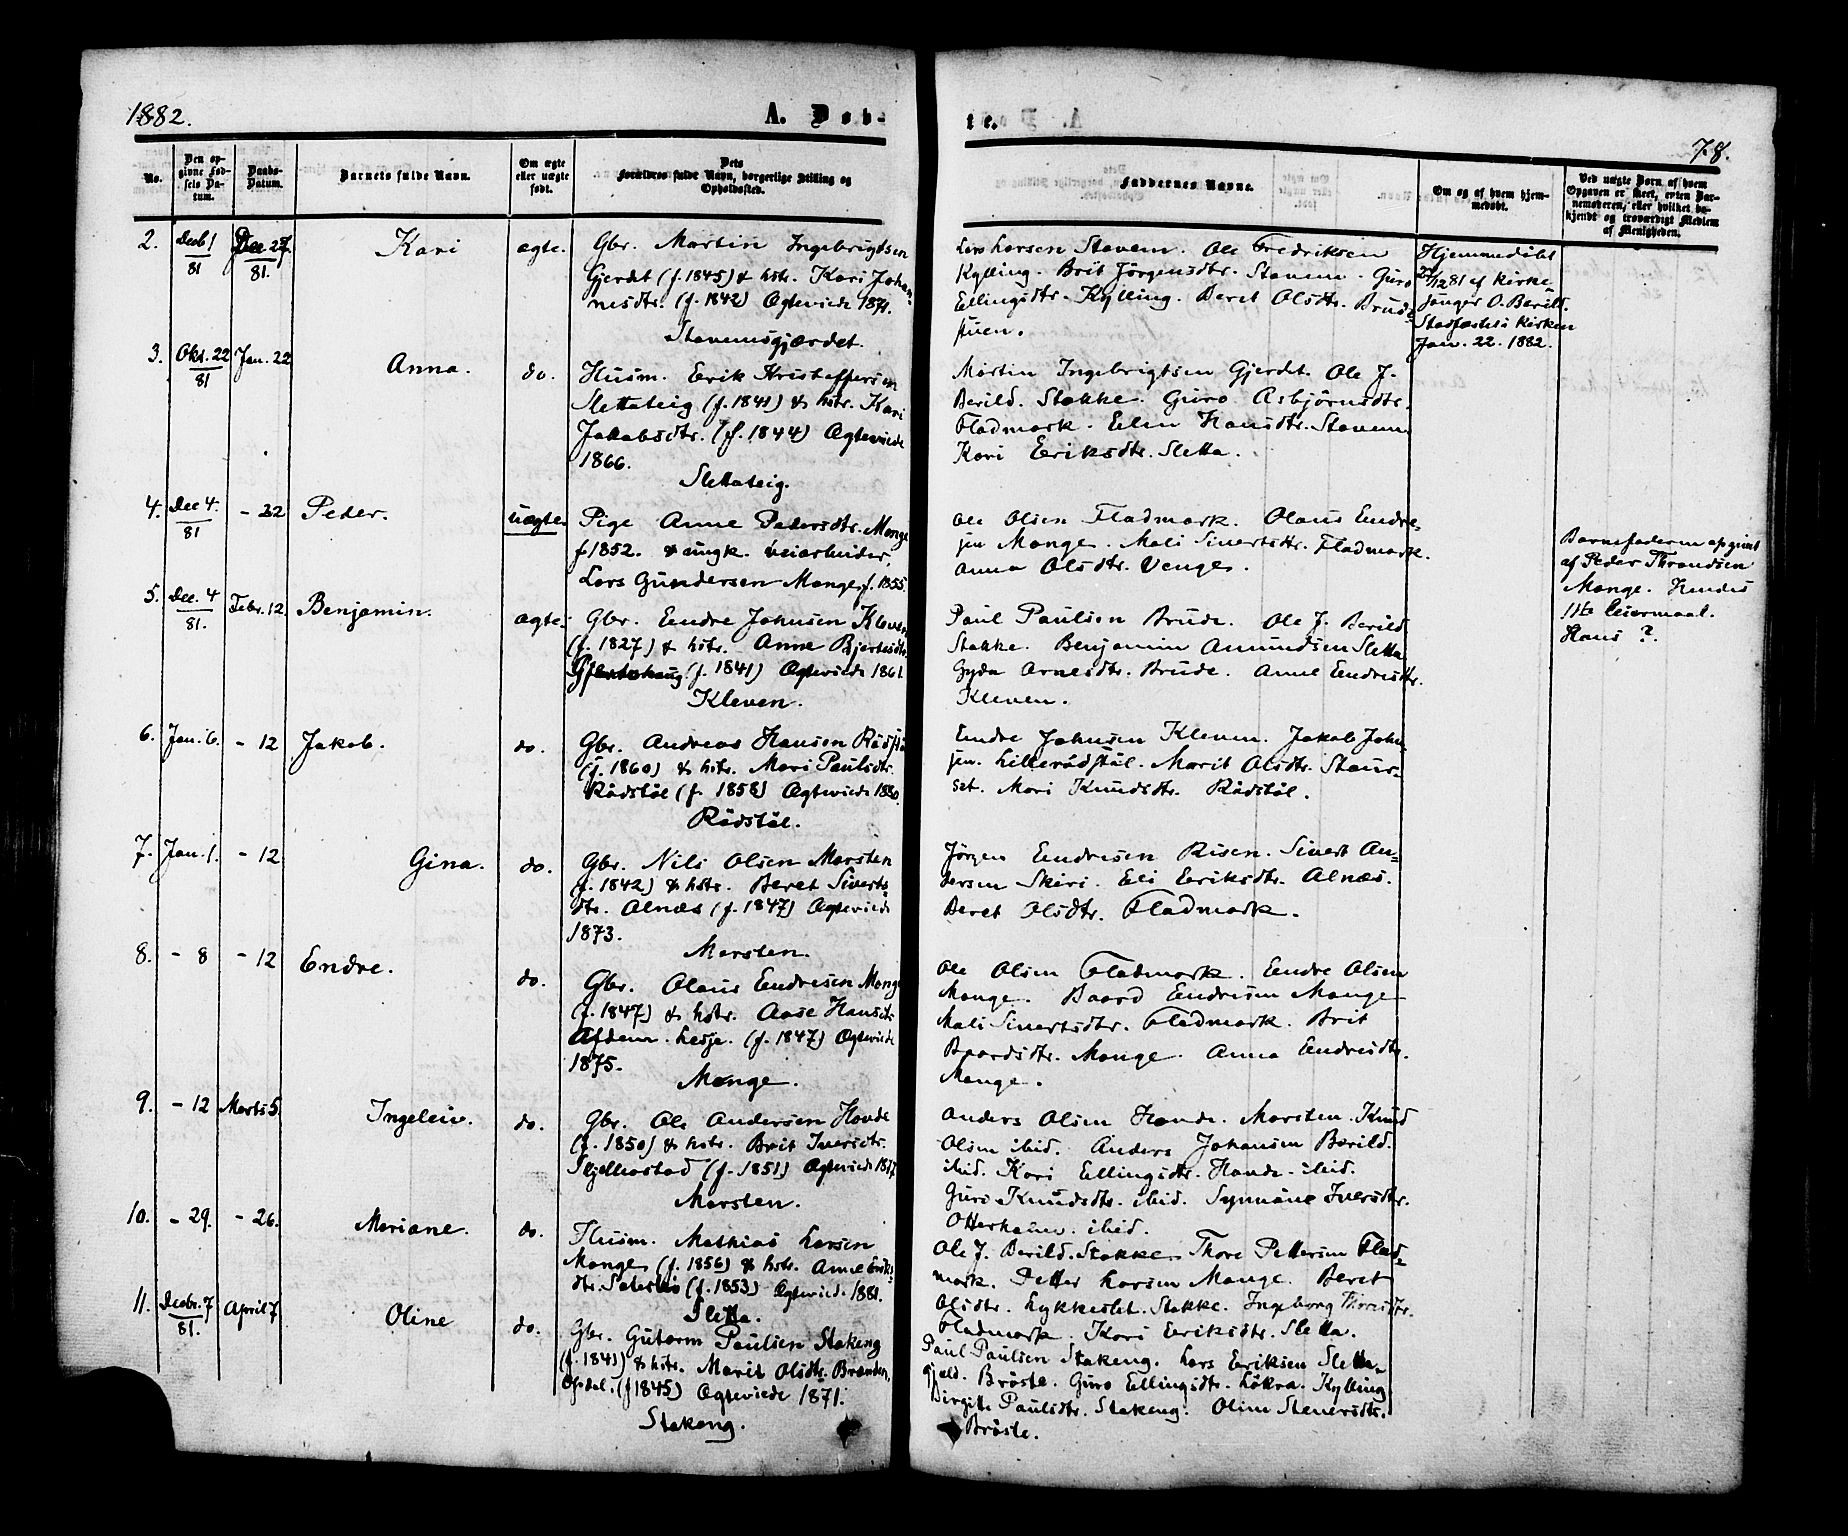 1882.
A. Døb-
te.
78.
No.
Den op-
givne Fød-
sels Da-
tum.
Daabs-
Datum.
Barnets fulde Navn.
Om ægte
eller uægte
født.
Dets
Forældres fulde Navn, borgerlige Stilling og
Opholdssted.
Faddernes Navne.
Om og af hvem hjem-
medøbt.
Ved uægte Børn, af hvem
Opgaven er skeet, enten Bar-
nemoderen, eller hvilket be-
kjendt og troværdigt Medlem
af Menigheden.
2. Decb 1
81
Dec 27
81.
Kari
ægte.
Gbr. Martin Ingebrigtsen
Gjerdet (f. 1845) & hstr. Kari Johan-
nesdtr. (f. 1842) Ægteviede 1871.
Stavemsgjærdet.
Lars Larsen Stavem. Ole Fredriksen
Kylling. Brit Jörgensdtr. Stavem. Guro
Ellingsdtr. Kylling. Beret Olsdtr. Brude-
stuen.
Hjemmedöbt
27/12 81 af Kirke-
sanger O. Berild.
Stadfæstet i Kirken
Jan. 22. 1882.
3. Okt. 22
81
Jan. 22
Anna.
do.
Husm. Erik Kristoffersen
Slettateig (f. 1841) & hstr. Kari
Jakobsdtr. (f. 1844) Ægteviede
1866.
Slettateig.
Martin Ingebrigtsen Gjerdet. Ole J.
Berild. Stokke. Guro Asbjörnsdtr.
Fladmark. Elen Hansdtr. Stavem
Kari Eriksdtr. Sletta.
4. Dec 4.
81
- 22
Peder.
uægte.
Pige Anne Pedersdtr. Monge
f 1852. & ungk. veiarbeider,
Lars Gundersen Monge, f. 1855.
Ole Olsen Fladmark. Olaus Endre-
sen Monge. Mali Sivertsdtr. Fladmark.
Anna Olsdtr. Venge.
Barnefaderen opgivet
af Peder Throndsen
Monge. Hendes
1ste Leiermaal.
Hans ?.
5. Dec. 4
81.
Febr. 12.
Benjamin.
ægte.
Gbr. Endre Johnsen Kleven
(f. 1827) & hstr. Anne Bjertesdtr.
(f. 1841) Ægteviede 1861.
Kleven.
Paul Paulsen Brude. Ole J. Berild
Stokke. Benjamin Amundsen Sletta
Gyda Arnesdtr. Brude. Anne Endresdtr.
Kleven.
6. Jan. 6.
- 12
Jakob.
do.
Gbr. Andreas Hansen Rödstöl
(f. 1860) & hstr. Mari Paulsdtr.
Rödstöl (f. 1858) Ægteviede 1880.
Rödstöl.
Endre Johnsen Kleven. Jakob John-
sen. Lillerödstöl. Marit Olsdtr. Staur-
set. Mari Knudsdtr. Rödstöl.
7. Jan. 1.
- 12
Gina.
do.
Gbr. Nils Olsen Marsten
(f. 1842) & hstr. Beret Siverts-
dtr. Alnæs (f. 1847) Ægteviede
1873.
Marsten.
Jörgen Endresen Risen. Sivert An-
dersen Skiri. Eli Eriksdtr. Alnæs.
Beret Olsdtr. Fladmark.
8. - 8
- 12
Endre.
do.
Gbr. Olaus Endresen Monge
(f. 1847) & hstr. Aase Hansdtr.
(f. 1847) Ægteviede
1875.
Monge.
Ole Olsen Fladmark. Endre Olsen
Monge. Baard Endresen Monge
Mali Sivertsdtr. Fladmark. Brit
Baardsdtr. Monge. Anna Endresdtr.
Monge.
9. - 12
Marts 5
Ingeleiv.
do.
Gbr. Ole Andersen Hande
(f. 1850) & hstr. Brit Iversdtr.
Skjelbostad (f. 1851) Ægteviede 1877
Marsten.
Anders Olsen Hande. Marsten. Knud
Olsen ibid. Anders Johansen Berild.
ibid. Kari Ellingsdtr. Hande. ibid.
Guri Knudsdtr. ibid. Synnöve Iversdtr.
ibid.
10. - 29.
- 26.
Mariane.
do.
Husm. Mathias Larsen
Monge (f. 1856) & hstr. Anne Eriks-
dtr. (f. 1853) Ægteviede 1881.
Sletta.
Ole J. Berild. Stokke. Thore Pettersen Flad-
mark. Petter Larsen Monge. Beret
Olsdtr. Lykkeslet. Stokke. Ingeborg Thoresdtr.
Fladmark. Kari Eriksdtr. Sletta.
11. Decbr. 7
81.
April 7
Oline
do.
Gbr. Gutorm Paulsen Stakeng
(f. 1841) & hstr. Marit Olsdtr. Branden,
Opdal. (f 1845) Ægteviede 1871.
Stakeng.
Paul Paulsen Stakeng. Lars Eriksen Sletta-
gjeld. Bröste. Guro Ellingsdtr. Lökra. Kylling
Birgitte Paulsdtr. Stakeng. Oline Stenersdtr.
Bröste.